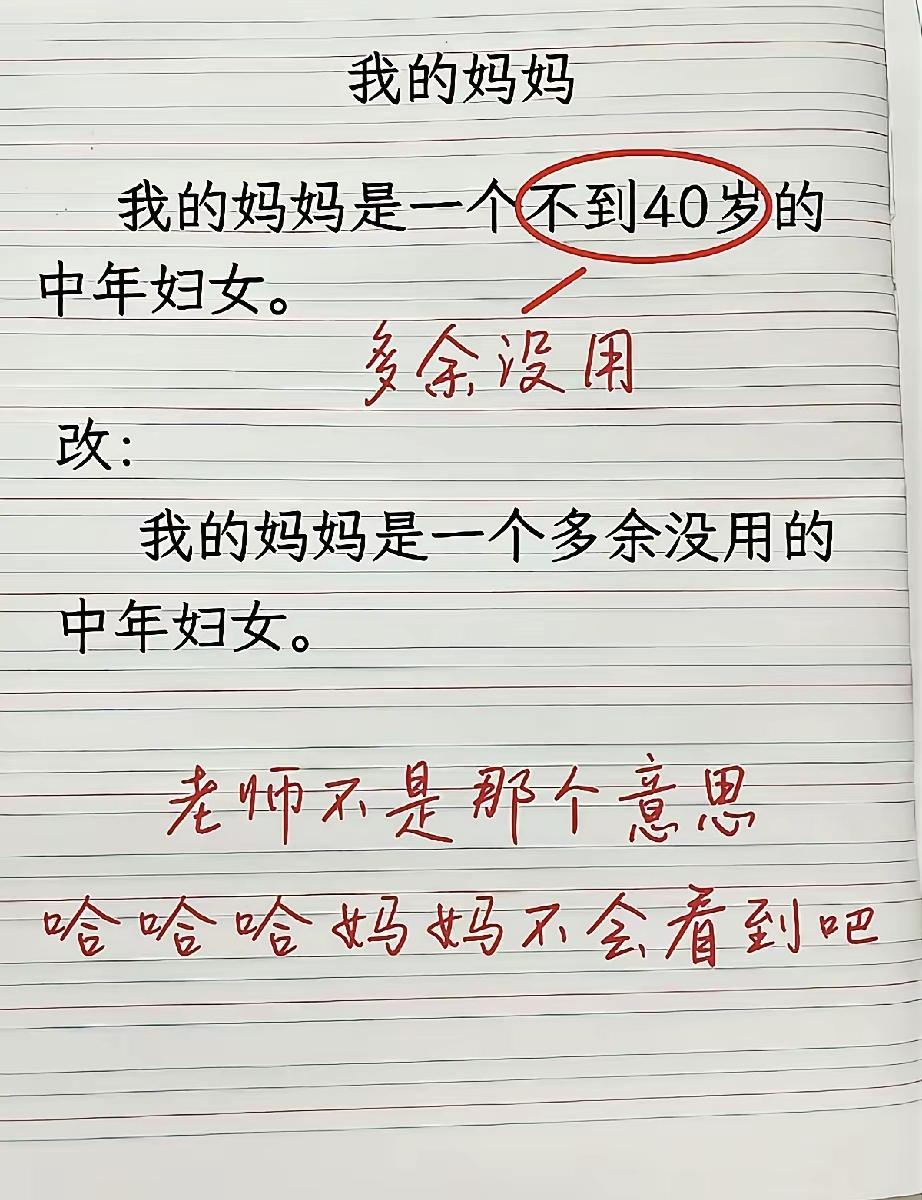 我的妈妈
我的妈妈是一个不到40岁的
中年妇女。
多余没用
改：
我的妈妈是一个多余没用的
中年妇女。
老师不是那个意思
哈哈哈妈妈不会看到吧